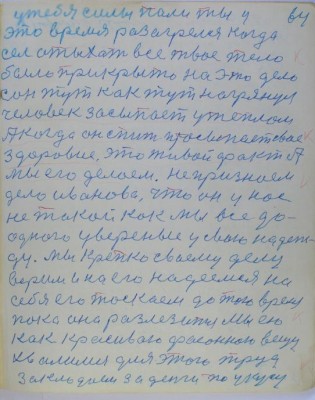 у тебя силы пали ты у ву
это время разагрелся когда
сел отыхать все твое тело
было прикрыто на это дело
сон тут как тут нагрянул
человек засыпает у теплом
А когда он спит просыпает свае
здоровие, это живой факт А
мы его делаем. непризнаем
дело иванова, что он у нас
не такой как мы все до-
одного уверены у свою надеж-
ду. мы крепко своему делу
верим и на его надеемся на
себя его тоскаем до того время
пока она разлезится мы ею
как красиваю фасонною вещу
хвалимся для этого труд
закладаем за денги по укусу